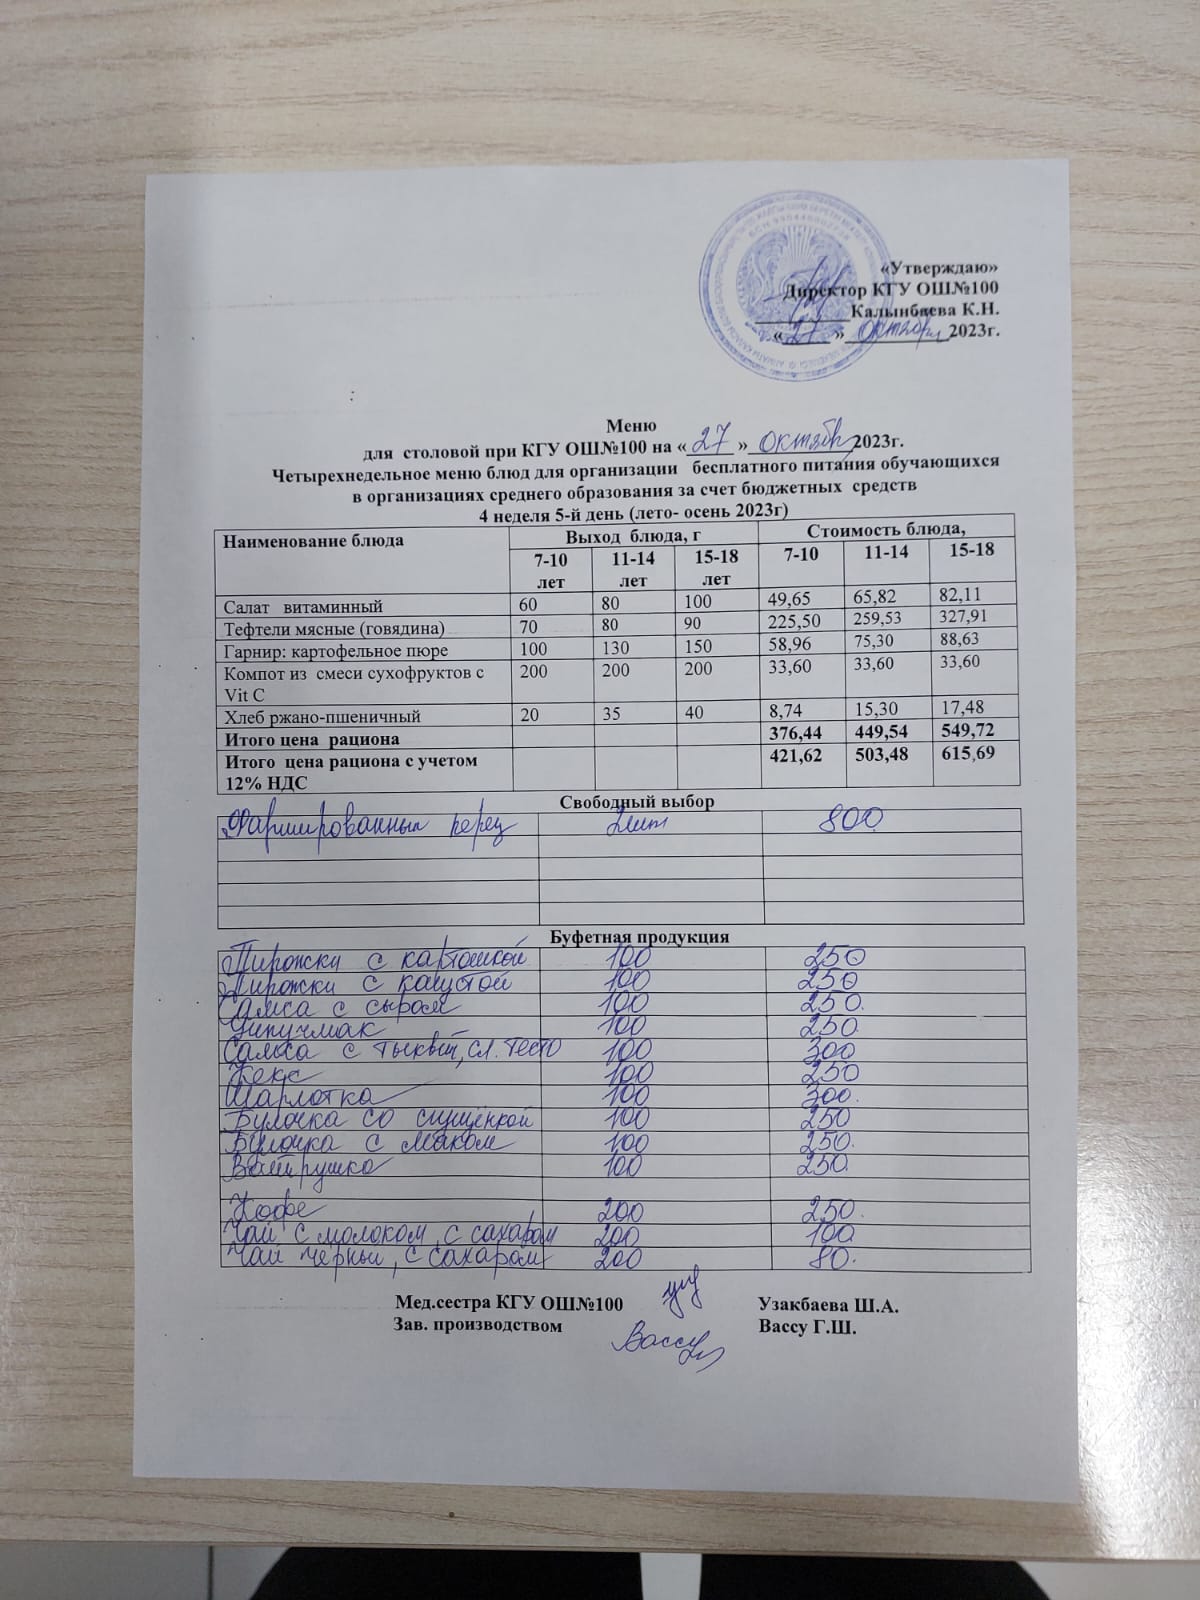 «Утверждаю»
Директор КГУ ОШ№100
Калынбаева К.Н.
«27» октября 2023г.
Меню
для столовой при КГУ ОШ№100 на «27» октябр 2023г.
Четырехнедельное меню блюд для организации бесплатного питания обучающихся
в организациях среднего образования за счет бюджетных средств
4 неделя 5-й день (лето- осень 2023г)
Наименование блюда Выход блюда, г Стоимость блюда,
7-10 лет 11-14 лет 15-18 лет 7-10 11-14 15-18
Салат витаминный 60 80 100 49,65 65,82 82,11
Тефтели мясные (говядина) 70 80 90 225,50 259,53 327,91
Гарнир: картофельное пюре 100 130 150 58,96 75,30 88,63
Компот из смеси сухофруктов с 200 200 200 33,60 33,60 33,60
Vit C
Хлеб ржано-пшеничный 20 35 40 8,74 15,30 17,48
Итого цена рациона 376,44 449,54 549,72
Итого цена рациона с учетом 421,62 503,48 615,69
12% НДС
Свободный выбор
Фаршированный перец 2шт 800
Буфетная продукция
Пирожки с картошкой 100 250
Пирожки с капустой 100 250
Самса с сыром 100 250.
100 250
Самса с тыквой, сл. тесто 100 300
Кекс 100 250
Шарлотка 100 300.
Булочка со сгущёнкой 100 250
Булочка с маком 100 250.
Ватрушка 100 250.
Кофе 200 250.
Чай с молоком, с сахаром 200 100
Чай черный, с сахаром 200 80.
Мед.сестра КГУ ОШ№100 Узакбаева Ш.А.
Зав. производством Вассу Г.Ш.